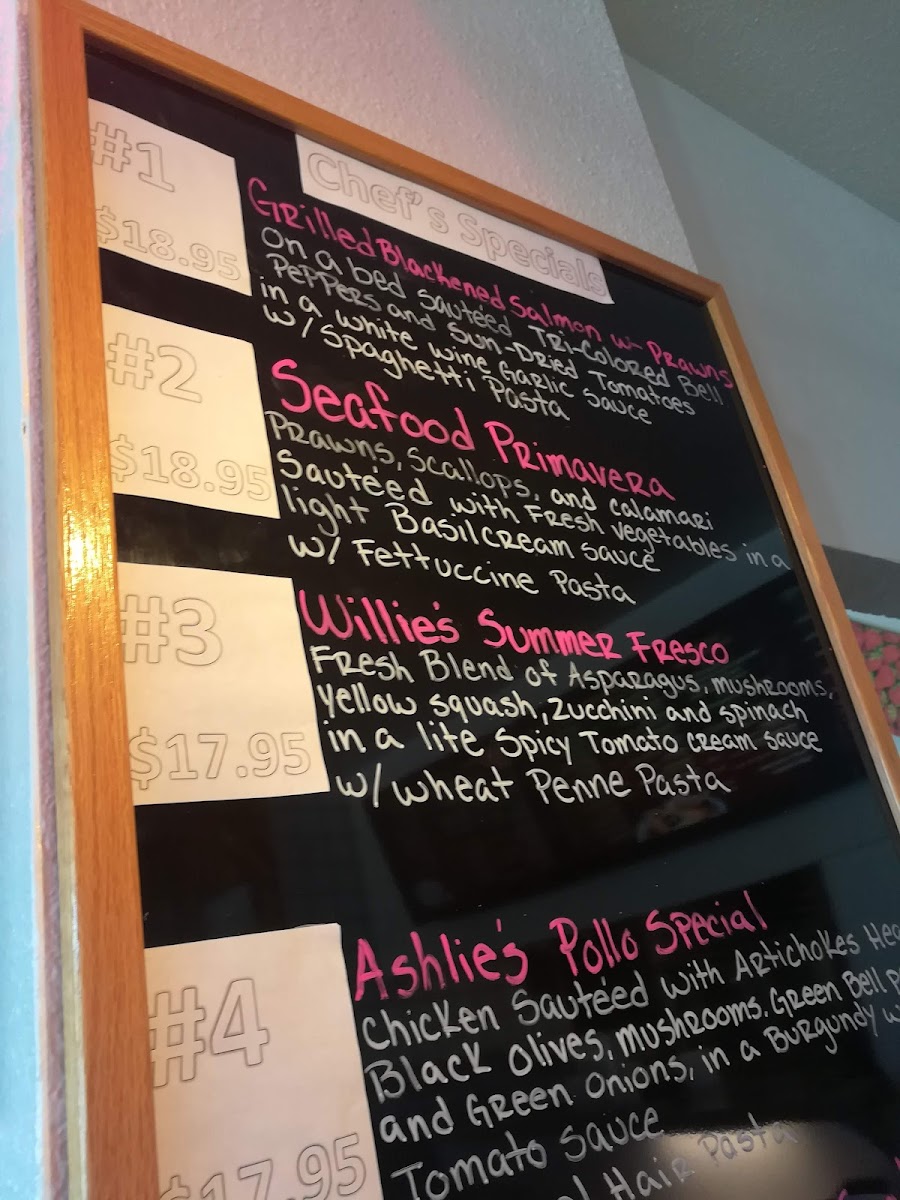 Chef's Specials
#1
$18.95
Grilled Blackened Salmon w- Prawns
On a bed sautéed Tri-Colored Bell
Peppers and Sun-Dried Tomatoes
in a white wine Garlic sauce
w/ Spaghetti Pasta
#2
$18.95
Seafood Primavera
Prawns, Scallops, and calamari
Sautéed with Fresh vegetables in a
light Basil cream sauce
w/ Fettuccine Pasta
#3
$17.95
Willie's Summer Fresco
Fresh Blend of Asparagus, mushrooms,
yellow squash, zucchini and spinach
in a lite Spicy Tomato cream sauce
w/ wheat Penne Pasta
#4
$17.95
Ashlie's Pollo Special
Chicken Sautéed with Artichokes
Black Olives, mushrooms, Green Bell
and Green Onions, in a Burgundy
Tomato Sauce
Hair Pasta